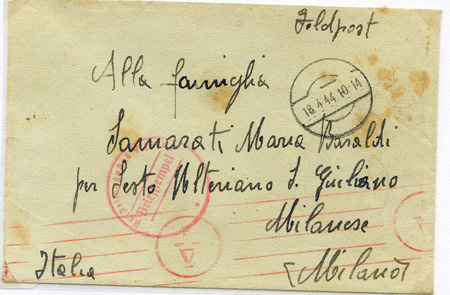 Feldpost
Alla famiglia
18.4.44.10-14
Samarati Maria Baraldi
per Sesto Ulteriano S. Giuliano
Briefstempel
Milanese
A
Italia
(Milano)
A